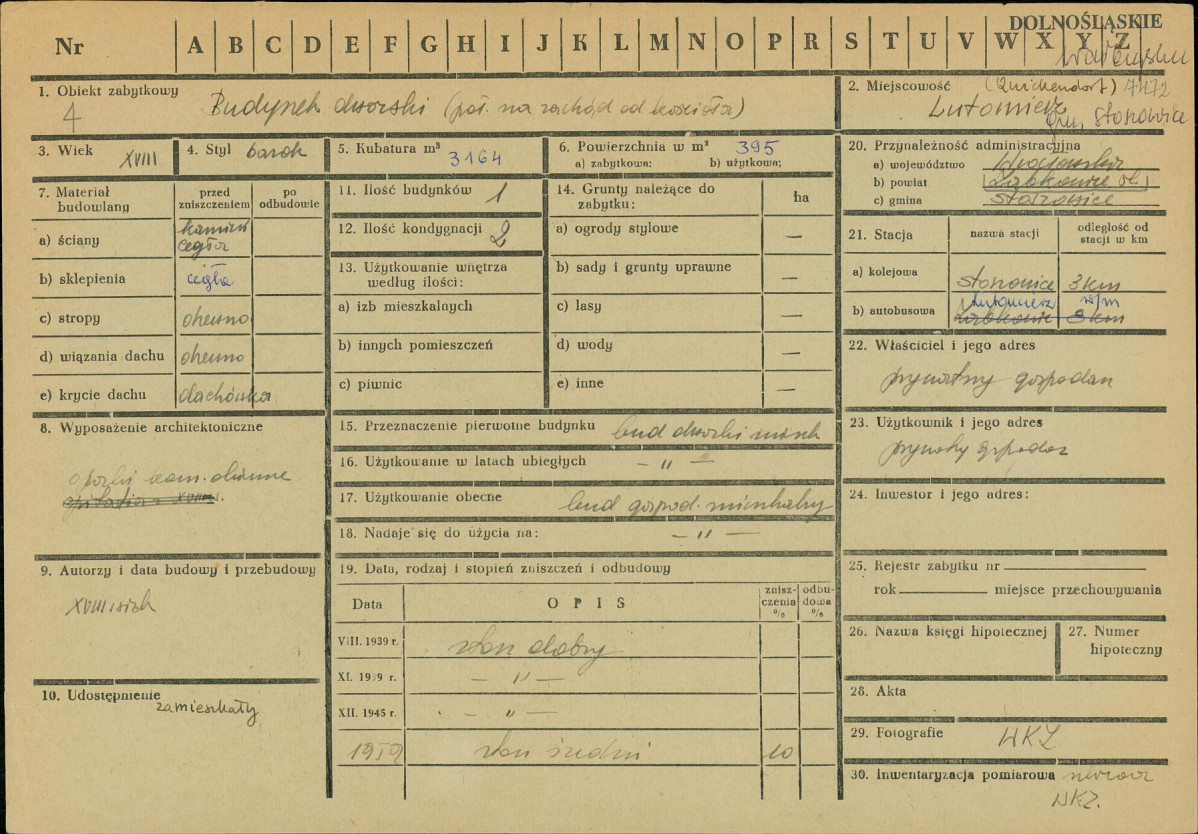 DOLNOŚLĄSKIE
Nr A B C D E F G H I J K L M N O P R S T U V W X Y Z
1. Obiekt zabytkowy
4
Budynek dworski (poł. na zachód od kościoła)
2. Miejscowość (Quickendorf) 7472
Lutomierz
gm. Stoszowice
3. Wiek XVIII
4. Styl barok
5. Kubatura m³ 3164
6. Powierzchnia w m² 395
a) zabytkowa: b) użytkowa:
20. Przynależność administracyjna
a) województwo
b) powiat Ząbkowice śl.
c) gmina Stoszowice
7. Materiał budowlany
przed zniszczeniem
po odbudowie
a) ściany kamień cegła
b) sklepienia cegła
c) stropy drewno
d) wiązania dachu drewno
e) krycie dachu dachówka
11. Ilość budynków 1
12. Ilość kondygnacji 2
13. Użytkowanie wnętrza według ilości:
a) izb mieszkalnych
b) innych pomieszczeń
c) piwnic
14. Grunty należące do zabytku:
ha
a) ogrody stylowe —
b) sady i grunty uprawne —
c) lasy —
d) wody —
e) inne —
21. Stacja
nazwa stacji
odległość od stacji w km
a) kolejowa Stoszowice 3 km
Lutomierz w/m
b) autobusowa Ząbkowice 8 km
22. Właściciel i jego adres
prywatny gospodarz
8. Wyposażenie architektoniczne
opaski kam. okienne
15. Przeznaczenie pierwotne budynku bud dworski mieszk
16. Użytkowanie w latach ubiegłych — " —
17. Użytkowanie obecne bud gospod. mieszkalny
18. Nadaje się do użycia na: — " —
23. Użytkownik i jego adres
prywatny gospodarz
24. Inwestor i jego adres:
9. Autorzy i data budowy i przebudowy
XVIII wiek
19. Data, rodzaj i stopień zniszczeń i odbudowy
Data
OPIS
znisz-czenia %
odbu-dowa %
VIII. 1939 r. stan dobry
XI. 1939 r. — " —
XII. 1945 r. — " —
1959 stan średni 10
25. Rejestr zabytku nr
rok miejsce przechowywania
26. Nazwa księgi hipotecznej
27. Numer hipoteczny
10. Udostępnienie
zamieszkały
28. Akta
29. Fotografie WKZ
30. Inwentaryzacja pomiarowa
WKZ.